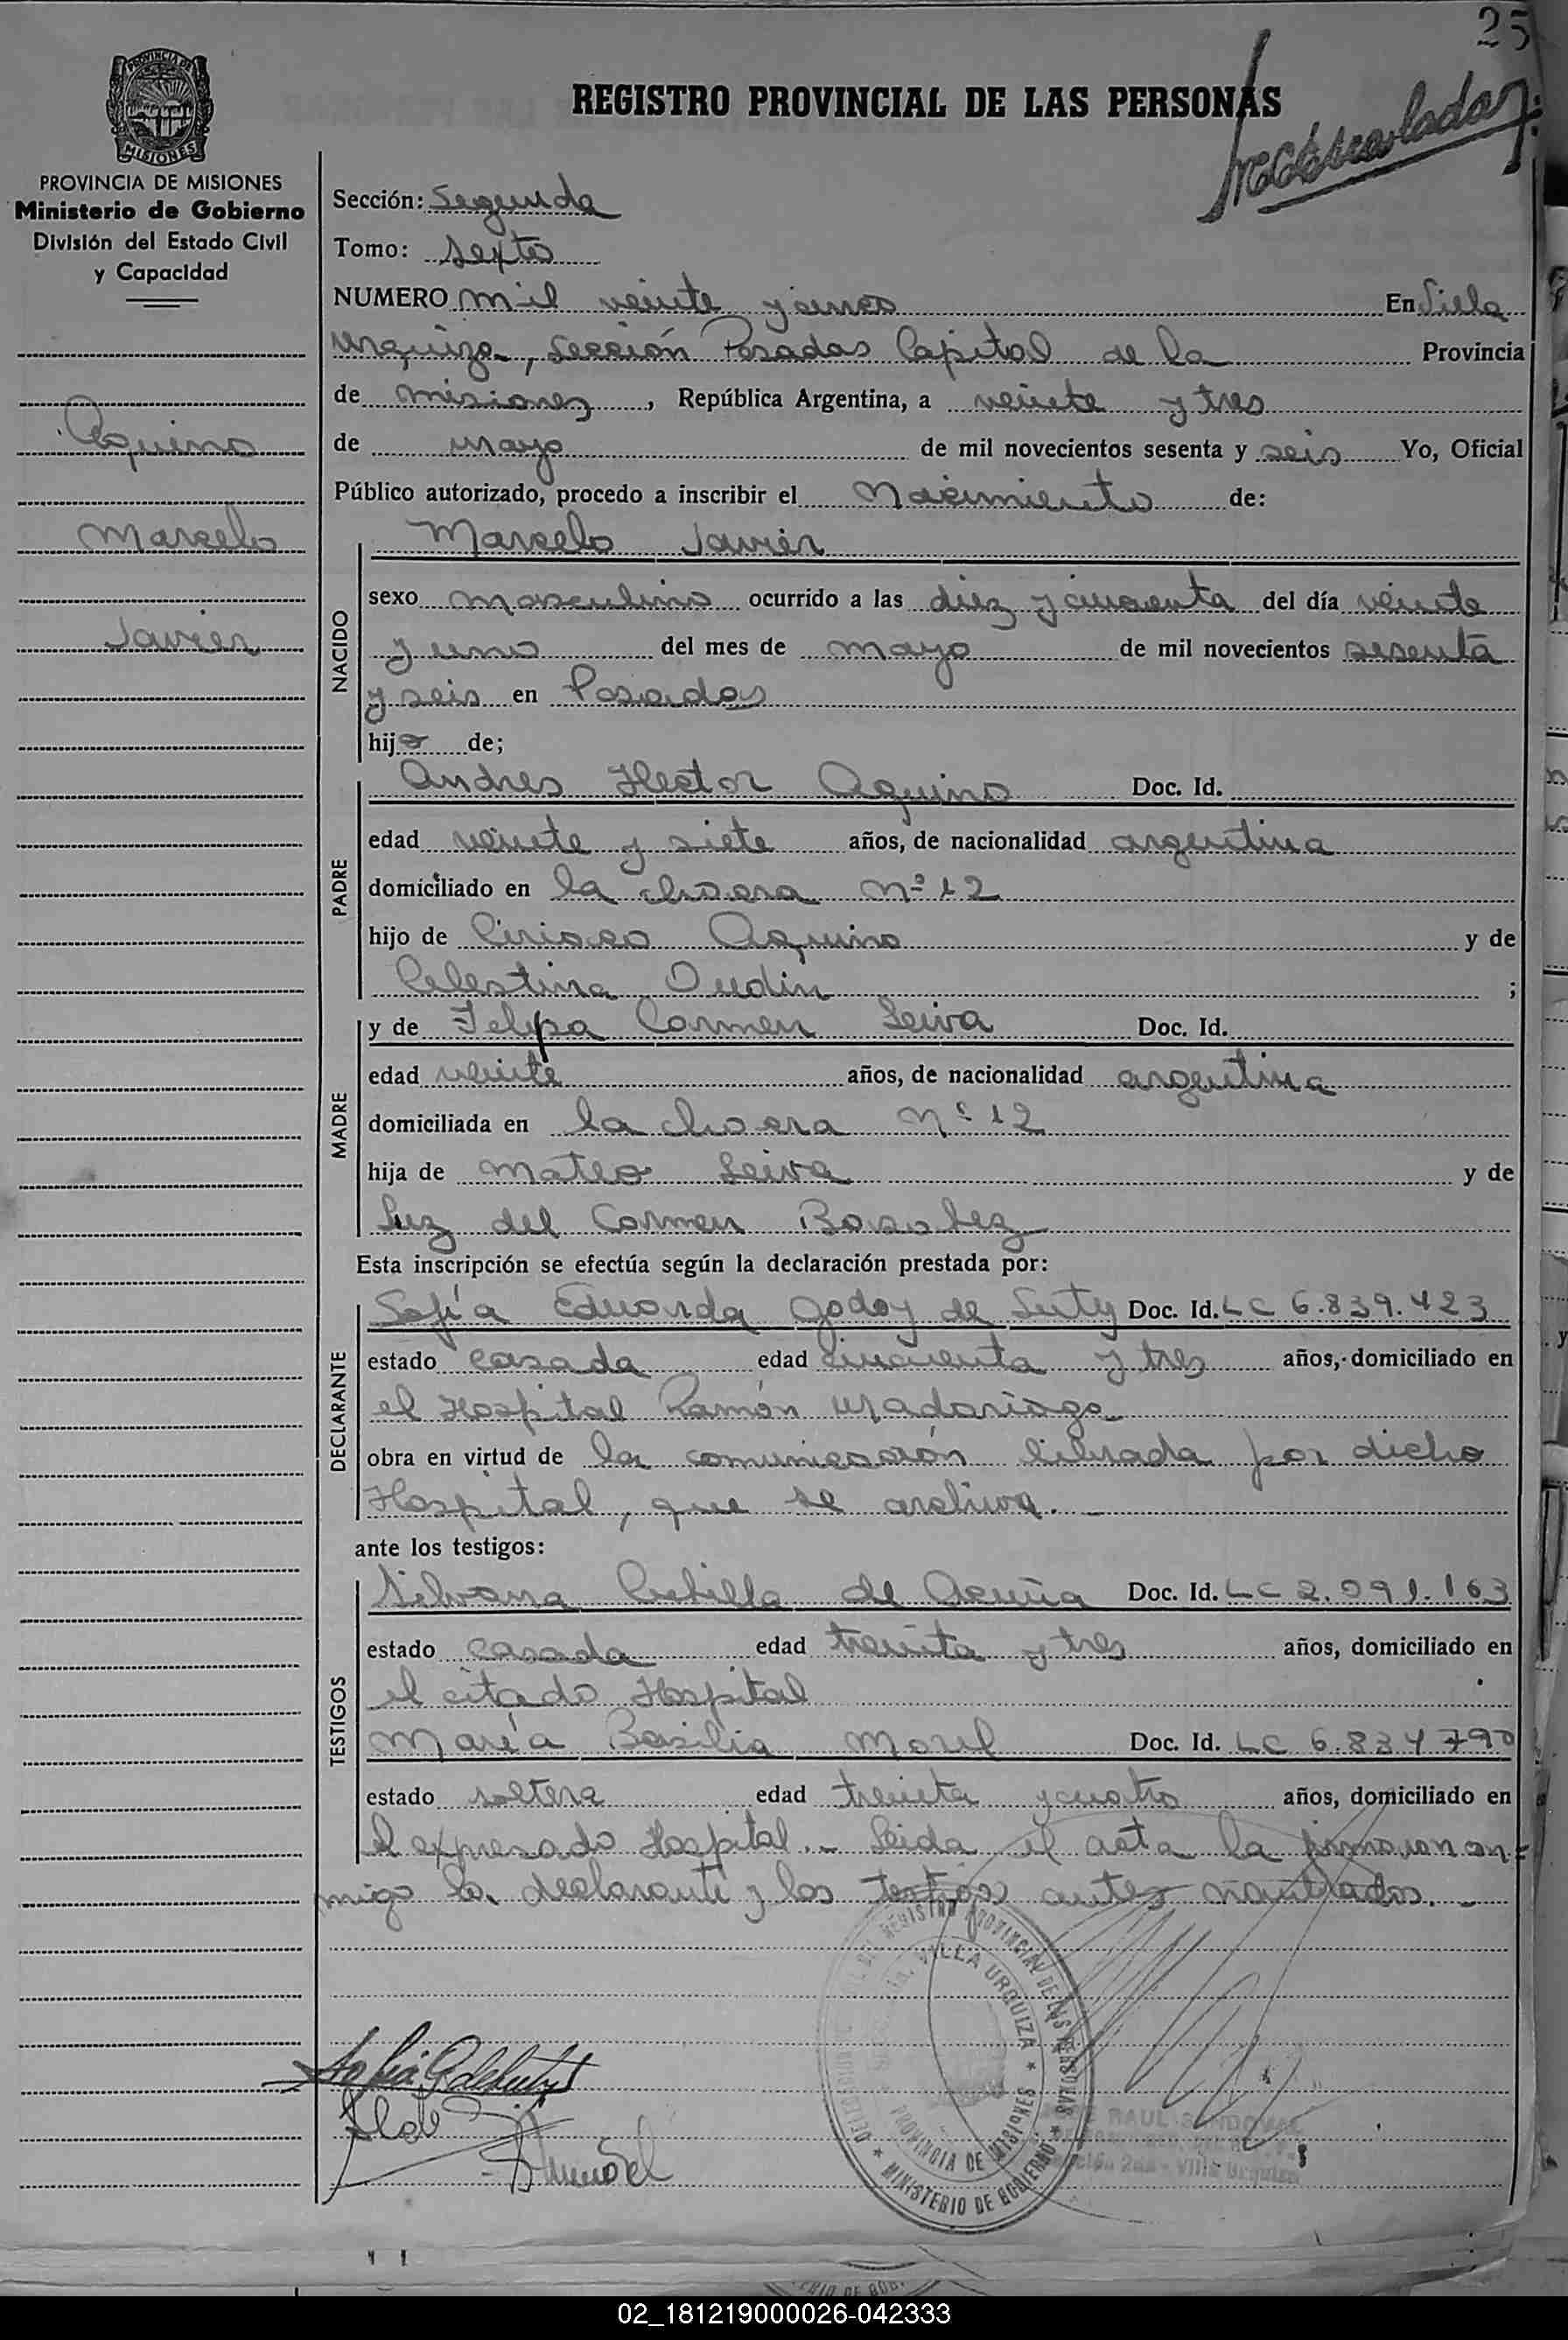 25
REGISTRO PROVINCIAL DE LAS PERSONAS
PROVINCIA DE MISIONES
Ministerio de Gobierno
División del Estado Civil
y Capacidad
Aquino
Marcelo
Javier
Sección: Segunda
Tomo: Sexto
NUMERO mil veinte y cinco En Villa
Urquiza, Sección Posadas Capital de la Provincia
de Misiones, República Argentina, a veinte y tres
de mayo de mil novecientos sesenta y seis Yo, Oficial
Público autorizado, procedo a inscribir el Nacimiento de:
NACIDO
Marcelo Javier
sexo masculino ocurrido a las diez y cincuenta del día veinte
y uno del mes de mayo de mil novecientos sesenta
y seis en Posadas
hijo de;
PADRE
Andres Hector Aquino Doc. Id.
edad veinte y siete años, de nacionalidad argentina
domiciliado en la chacra Nº 12
hijo de Ciriaco Aquino y de
Celestina Oudin ;
MADRE
y de Felipa Carmen Leiva Doc. Id.
edad veinte años, de nacionalidad argentina
domiciliada en la chacra Nº 12
hija de Mateo Leiva y de
Luz del Carmen
Esta inscripción se efectúa según la declaración prestada por:
DECLARANTE
Sofía Eduarda Godoy de Doc. Id. LC 6.839.423
estado casada edad cincuenta y tres años, domiciliado en
el Hospital Ramón Madariaga
obra en virtud de la comunicación librada por dicho
Hospital, que se archiva.
ante los testigos:
TESTIGOS
Silvana de Acuña Doc. Id. LC 2.091.163
estado casada edad treinta y tres años, domiciliado en
el citado Hospital
María Basilia Morel Doc. Id. LC 6.834.790
estado soltera edad treinta y cuatro años, domiciliado en
el expresado Hospital. Leida el acta la firmaron con-
migo la declarante y los testigos antes nombrados.
DEL REGISTRO PROVINCIAL DE LAS PERSONAS
VILLA URQUIZA
PROVINCIA DE MISIONES
MINISTERIO DE GOBIERNO
RAUL SANDOVAL
Sección 2da - Villa Urquiza
02_181219000026-042333